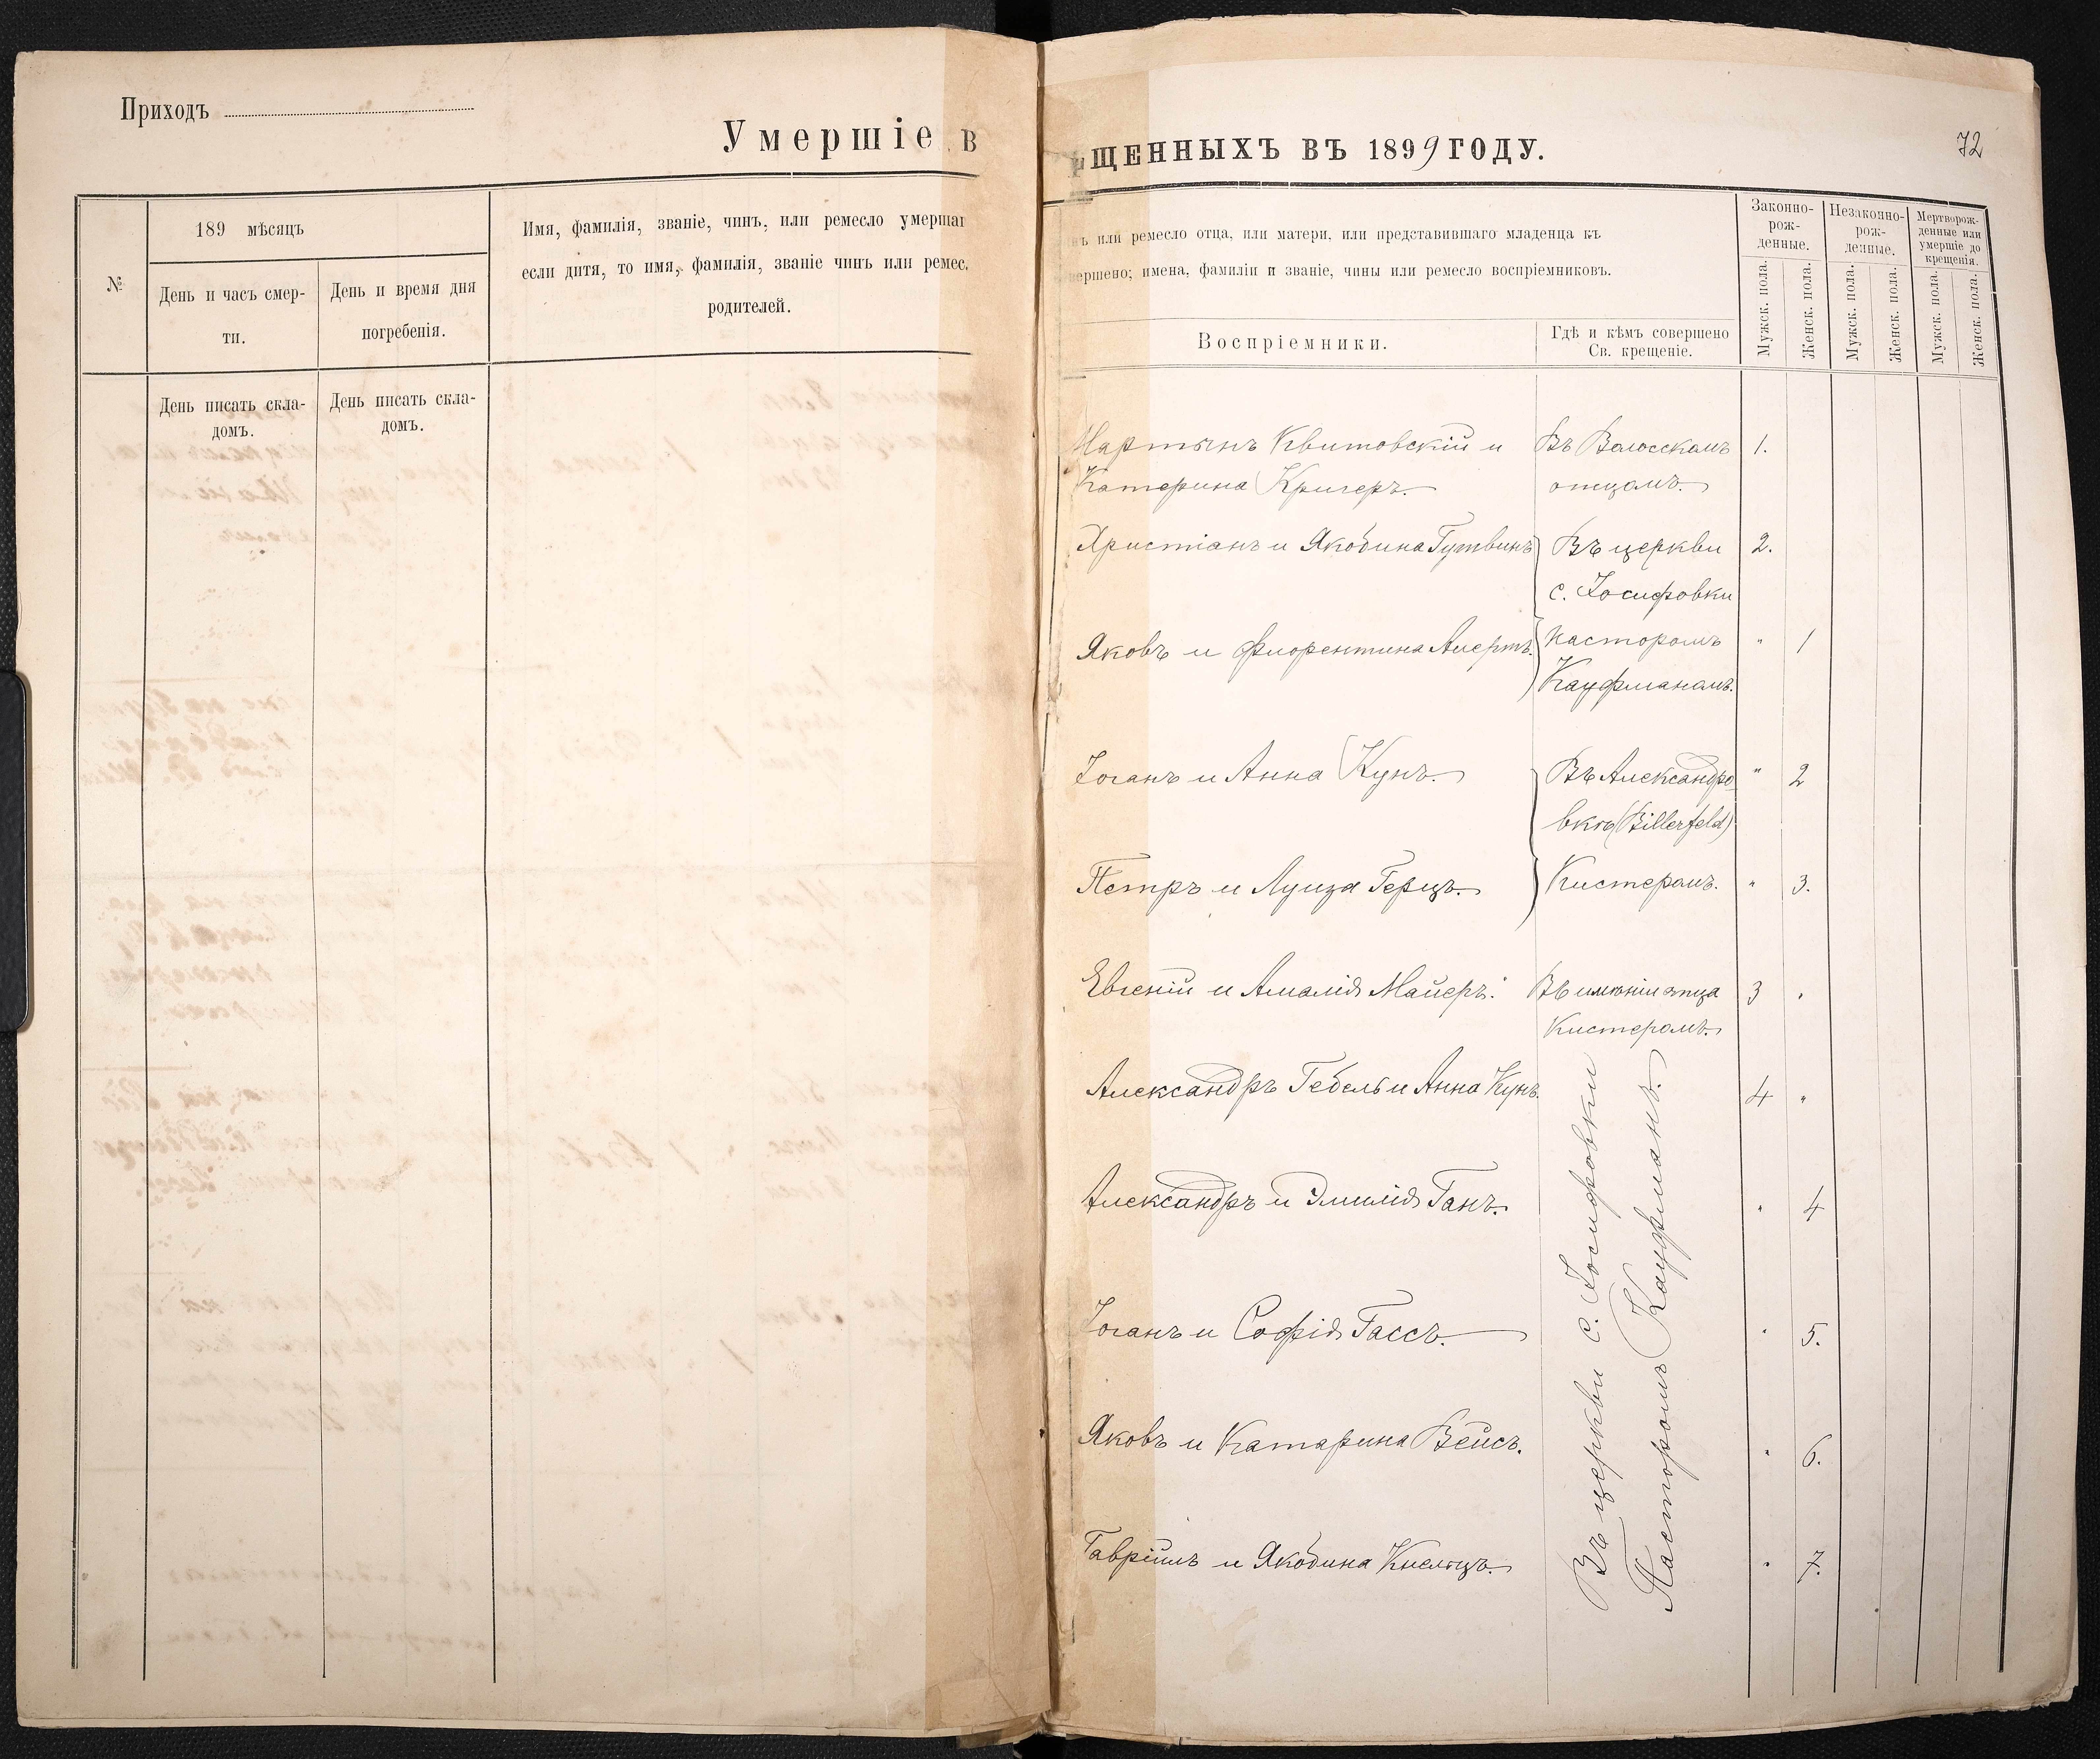 Приходъ
Умершіе в
№
189 мѣсяцъ
День и часъ смер-
ти.
День и время дня
погребенія.
Имя, фамилія, званіе, чинъ, или ремесло умершаг
если дитя, то имя, фамилія, званіе чинъ или ремес.
родителей.
День писать скла-
домъ.
День писать скла-
домъ.
72
ЩЕННЫХЪ ВЪ 1899 ГОДУ.
нъ или ремесло отца, или матери, или представившаго младенца къ
вершено; имена, фамиліи и званіе, чины или ремесло воспріемниковъ.
Воспріемники.
Гдѣ и кѣмъ совершено
Св. крещеніе.
Законно-
рож-
денные.
Незаконно-
рож-
денные.
Мертворож-
денные или
умершіе до
крещенія.
Мужск. пола.
Женск. пола.
Мужск. пола.
Женск. пола.
Мужск. пола.
Женск. пола.
Мартынъ Квитовскій и Въ 1.
Катерина Кригеръ. отцомъ.
Христіанъ и Якобина Гутвинъ Въ церкви 2.
с. Іосифовки
Яковъ и Флорентина Алертъ. Пасторомъ " 1
Кауфманомъ.
Іоганъ и Анна Кунъ. Въ Александро- " 2
вкѣ (Billerfeld)
Петръ и Луиза Герцъ. Кистеромъ. " 3.
Евгеній и Амалія Майеръ. Въ имѣніи отца 3 "
Кистеромъ.
Александръ Гебель и Анна Кунъ. 4 "
Александръ и Эмилія Ганъ. " 4
Іоганъ и Софія Гассъ. " 5.
Яковъ и Катарина Вейсъ. " 6.
Гавріилъ и Якобина Кнельцъ. " 7.
Въ церкви с. Іосифовки
Пасторомъ Кауфманъ.